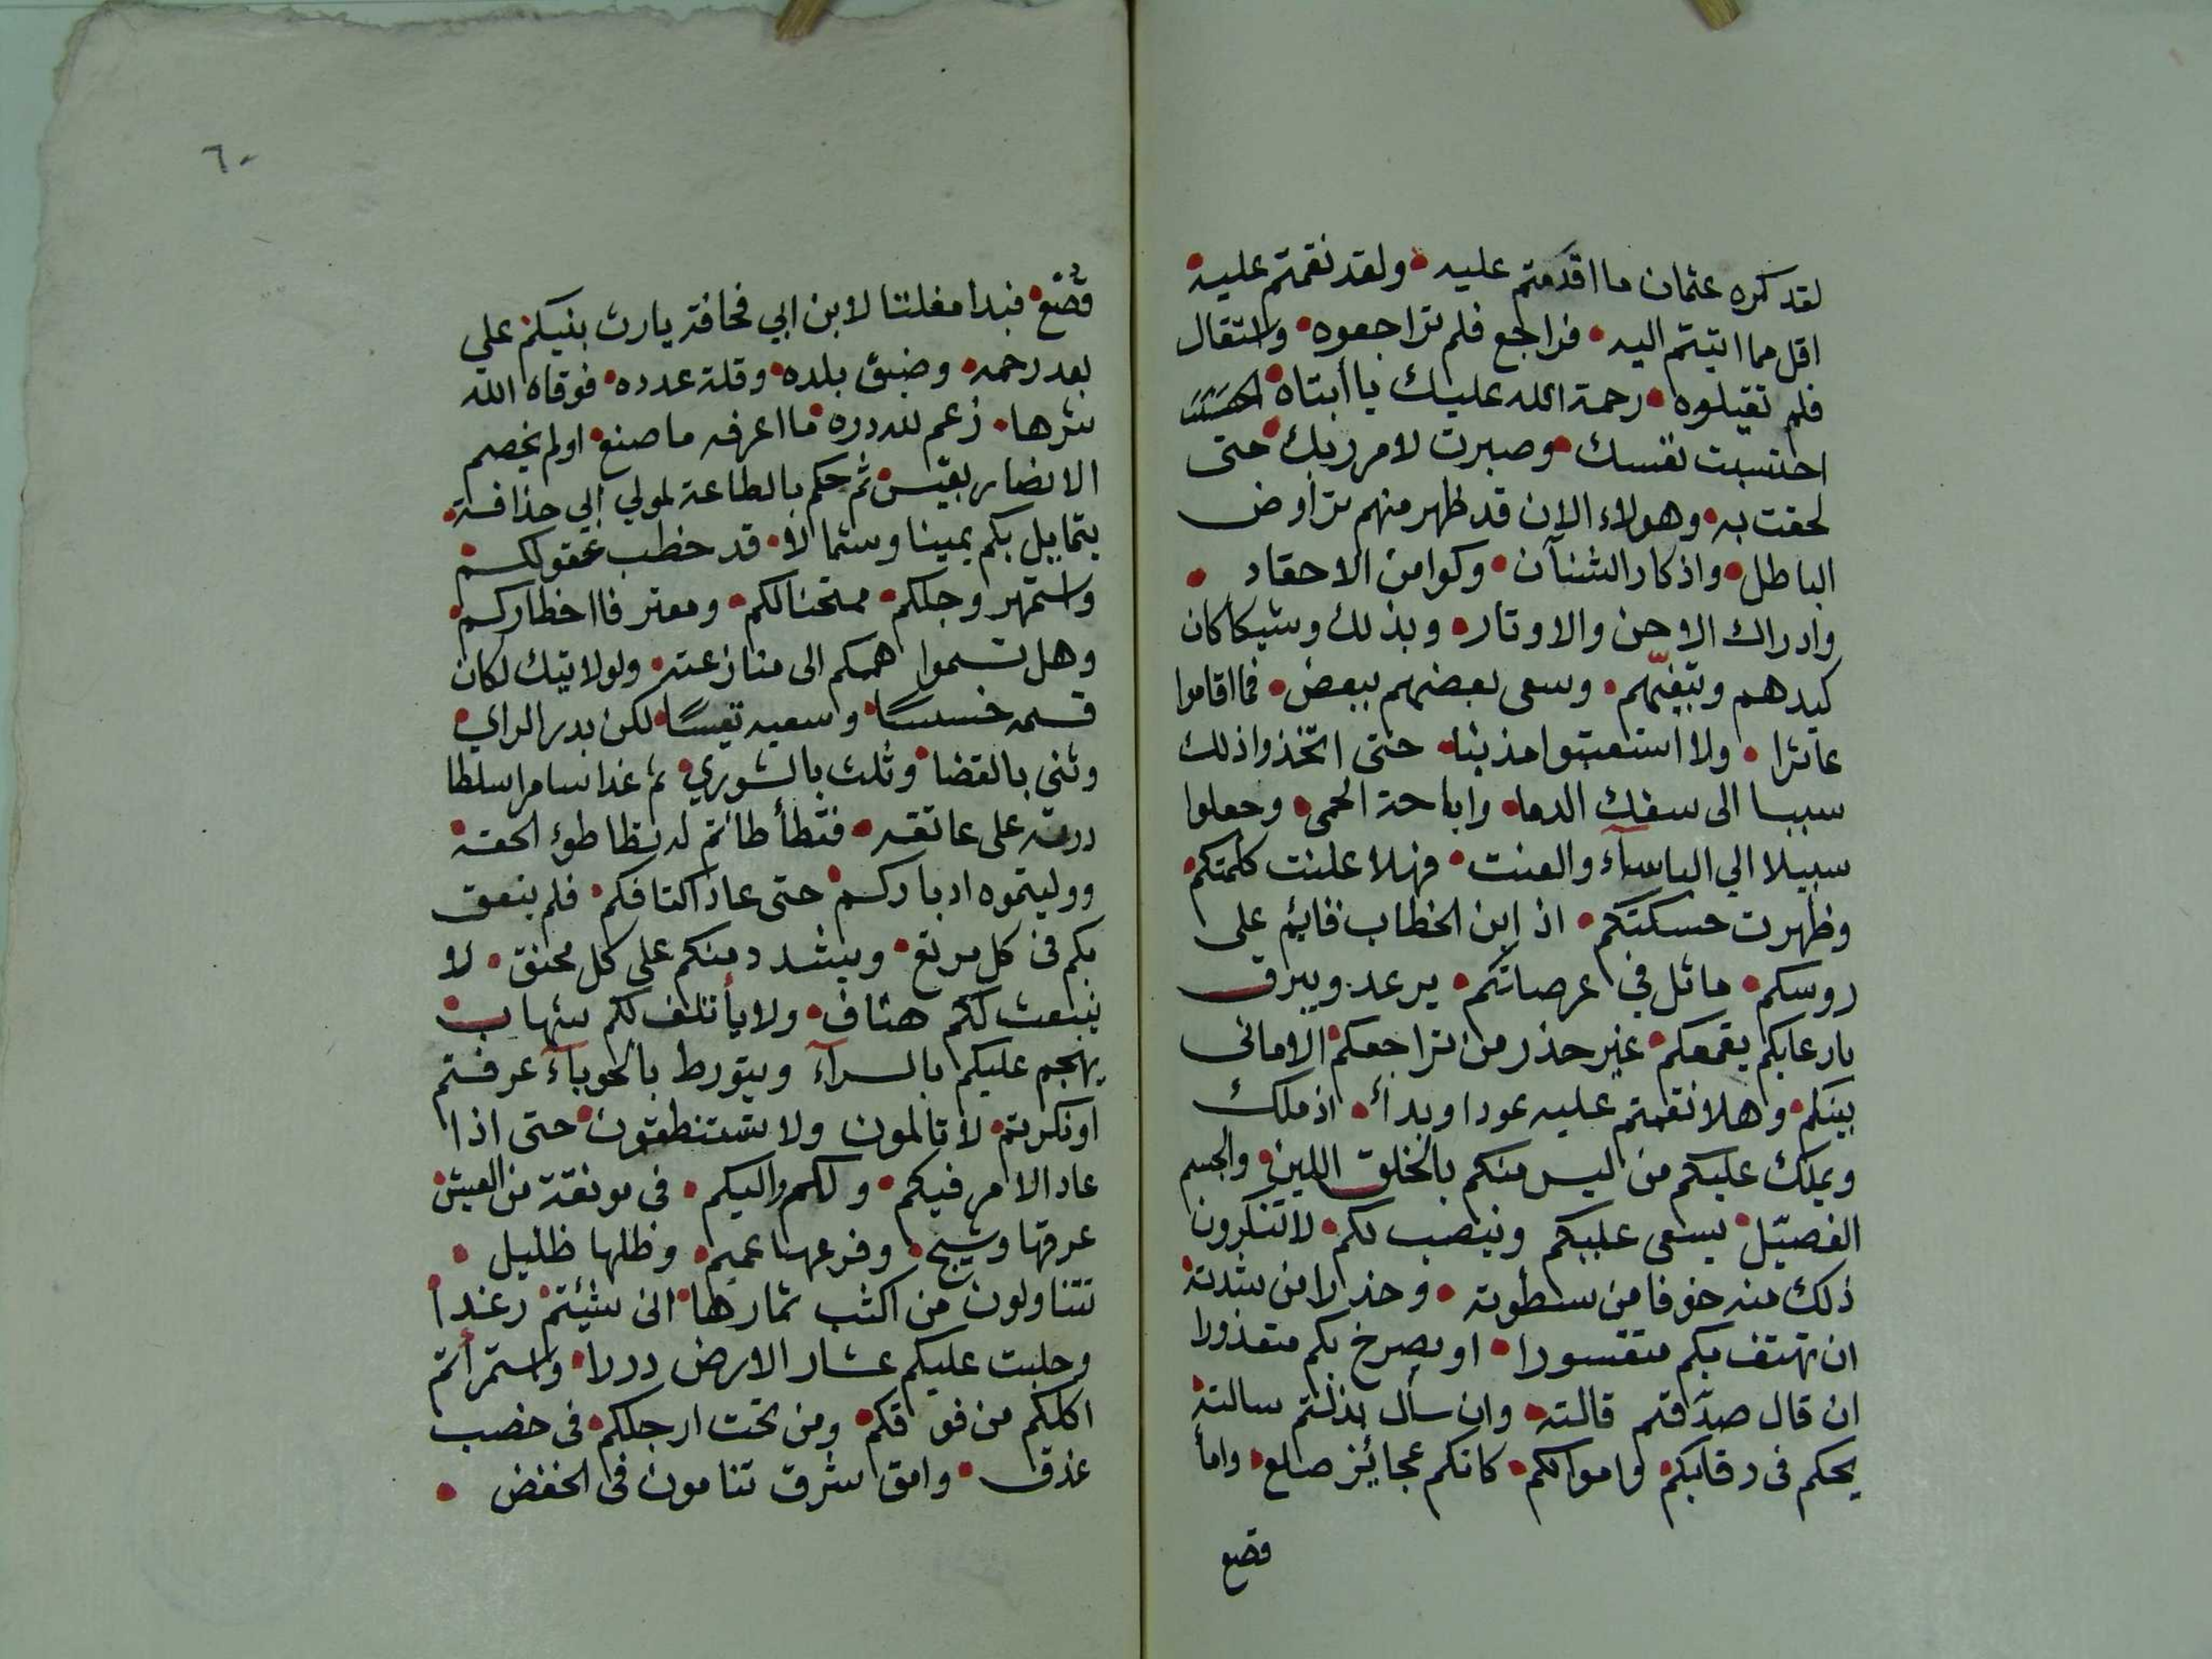 لقد كره عثمان ما اقدمتم عليه • ولقد نقمتم عليه •
اقل مما اتيتم اليه • فراجع فلم تراجعوه • واستقال
فلم تقيلوه • رحمة الله عليك يا أبتاه •
احتسبت نفسك • وصبرت لامر ربك • حتى
لحقت به • وهولاء الان قد ظهر منهم تراوض
الباطل • واذكار الشنآن • وكوامن الاحقاد •
وادراك الاحن والاوتار • وبذلك وشيكا كان
كيدهم وتبغيهم • وسعى بعضهم ببعض • فما اقاموا
عاثرا • ولا استعتبوا مذنبا • حتى اتخذوا ذلك
سببا الى سفك الدما • واباحة الحمى • وجعلوا
سبيلا الي الباسآء والعنت • فهلا علنت كلمتكم •
وظهرت حسكتكم • اذ ابن الخطاب قايم على
روسكم • ماثل في عرصاتكم • يرعد ويبرق
بارعابكم يقمعكم • غير حذر من تراجعكم • الامانى
بينكم • وهلا نقمتم عليه عودا وبدأ • اذ ملك
ويملك عليكم من ليس منكم بالخلق اللين • والجسم
الفصيّل • يسعى عليكم وينصب لكم • لا تنكرون
ذلك منه خوفا من سطوته • وحذرا من شدته •
ان تهتف بكم متقسورا • او يصرخ بكم متعذورا
ان قال صدّقتم قالته • وان سأل بذلتم سالته •
يحكم فى رقابكم • واموالكم • كانكم عجائيز صلع • واما
قصع
٦٠
قصّع • فبدا مغلتا لابن ابي قحافة يارث بنيكم علي
بعد رحمه • وضيق بلده • وقلة عدده • فوقاه الله
شرها • زعم لله دره • ما اعرفه ما صنع • اولم يخصم
الانصار بقيس • ثم حكم بالطاعة لمولي ابي حذافة •
يتمايل بكم يمينا وشمالا • قد خطب عقولكم •
واستمهر وجلكم • ممتحنا لكم • ومعترفا اخطاركم •
وهل تسموا هممكم الى منازعته • ولولا تيك لكان
قسمه خسيسًا • وسعيه تعيسًا • لكن بدر الراي •
وثني بالقضا • وثلث بالشوري • ثم غدا سامرا سلطا
درته على عاتقه • فتطأطأتم له تطاطؤ الحقة •
ووليتموه ادباركم • حتى عاذ اكتافكم • فلم ينعق
بكم فى كل مرتع • ويشد دمنكم على كل محنق • لا
ينبعث لكم هتاف • ولا يأتلف لكم شهاب •
يهجم عليكم بالسرآء ويتورط بالحوبآء عرفتم
او نكرتم • لا تالمون ولا تستنطقون • حتى اذا
عاد الامر فيكم • ولكم واليكم • فى مونقة من العيش •
عرقها وشيج • وفرعها عميم • وظلها ظليل •
تتناولون من اكثب ثمارها • انى شئتم • رغدا •
وحلبت عليكم عشار الارض دررا • واستمرأتم
اكلكم من فوقكم • ومن تحت ارجلكم • فى خصب
غذق • وامق شرق تنامون فى الخفض •